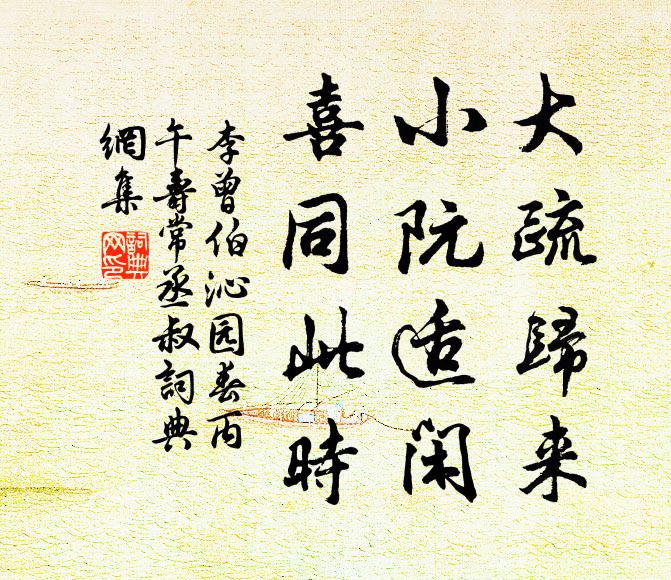 大疏歸来
小阮适閑
喜同此時
李曾伯沁园春丙
午壽常丞叔詞典
網集
詞典
网印